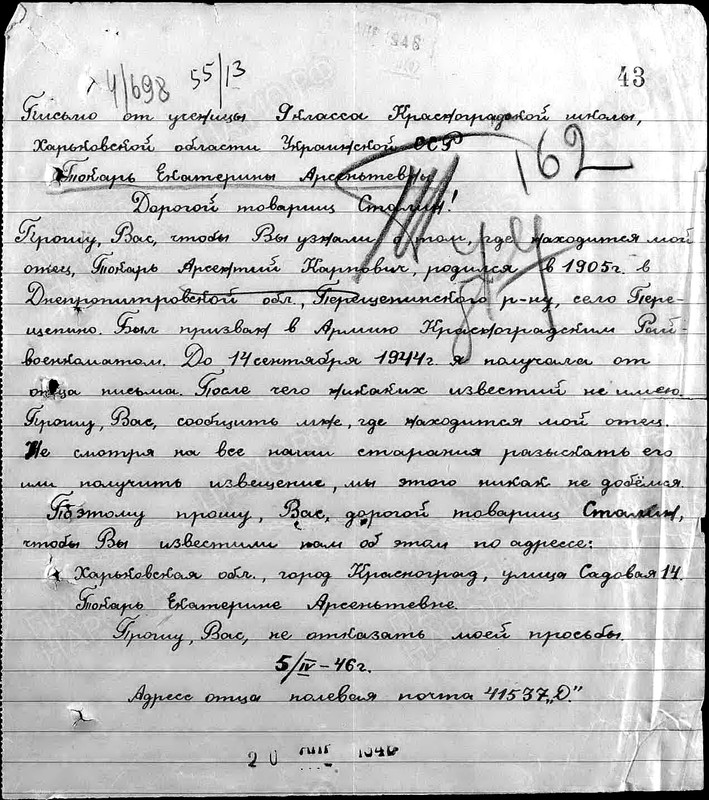 43
4/698 55/13
Письмо от ученицы 9 класса Красноградской школы,
Харьковской области Украинской ССР
162
Токарь Екатерины Арсентьевны
Дорогой товарищ Сталин!
Прошу, Вас, чтобы Вы узнали о том, где находится мой
отец, Токарь Арсентий Карпович, родился в 1905г. в
Днепропитровской обл., Перещепинского р-ну, село Пере-
щепино. Был призван в Армию Красноградским Рай-
военкоматом. До 14 сентября 1944г. я получала от
отца письма. После чего никаких известий не имею.
Прошу, Вас, сообщить мне, где находится мой отец.
Не смотря на все наши старания разыскать его
или получить извещение, мы этого никак не добъёмся.
Поэтому прошу, Вас, дорогой товарищ Сталин,
чтобы Вы известили нам об этом по адрессе:
Харьковская обл., город Красноград, улица Садовая 14.
Токарь Екатерине Арсентьевне.
Прошу, Вас, не отказать моей просьбы.
5/IV-46г.
Адресс отца полевая почта 41537 „D."
20